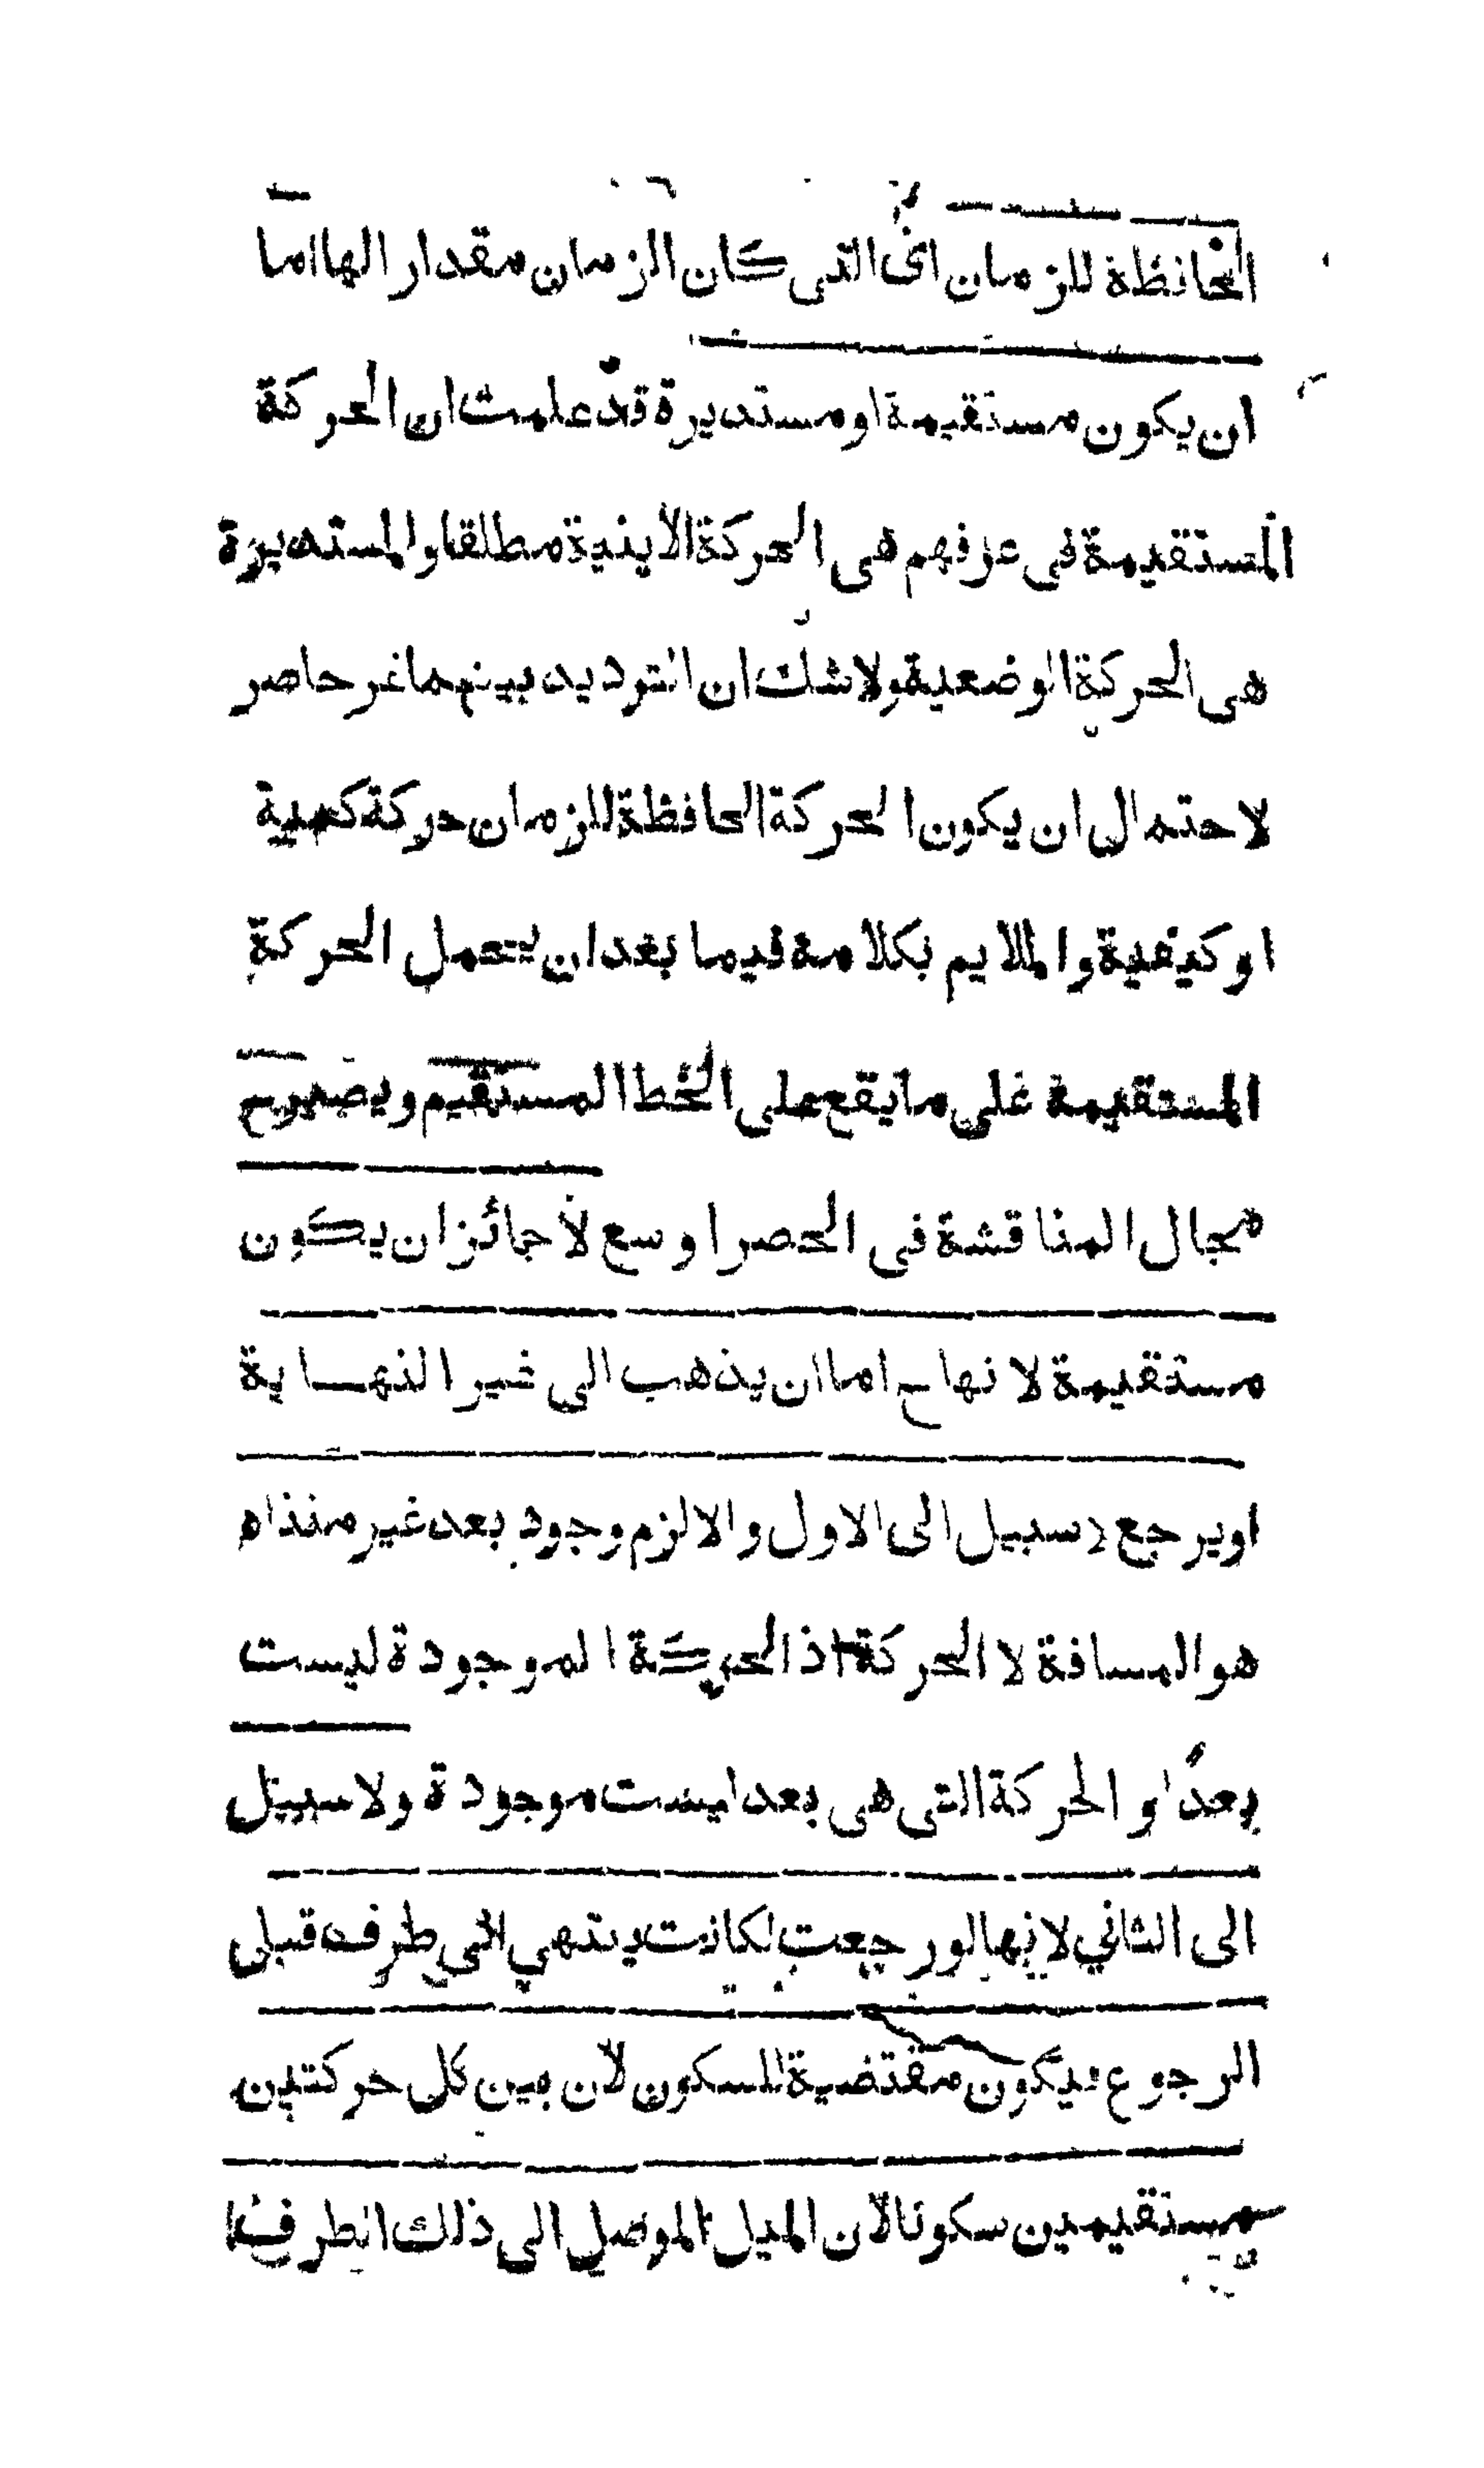 الحافظة للزمان اى التى كان الزمان مقدار الها اما
ان يكون مستقيمة او مستديرة قد علمت ان الحركة
المستقيمة فى عرفهم هى الحركة الاينية مطلقا والمستديرة
هى الحركة الوضعية ولا شك ان الترديد بينهما غير حاصر
لاحتمال ان يكون الحركة الحافظة للزمان حركة كمية
او كيفية والملايم بكلامه فيما بعد ان يحمل الحركة
المستقيمة على ما يقع على الخط المستقيم ويصير ح
مجال المناقشة فى الحصر اوسع لا جائز ان يكون
مستقيمة لانها ح اما ان يذهب الى غير النهاية
او يرجع لا سبيل الى الاول والا لزم وجود بعد غير متناه
هو المسافة لا الحركة اذ الحركة الموجودة ليست
بعدًا و الحركة التى هى بعد ليست موجودة ولا سبيل
الى الثاني لانها لو رجعت لكانت ينتهي الى طرف قبل
الرجوع فيكون مقتضية للسكون لان بين كل حركتين
مستقيمتين سكونا لان الميل الموصل الى ذلك الطرف